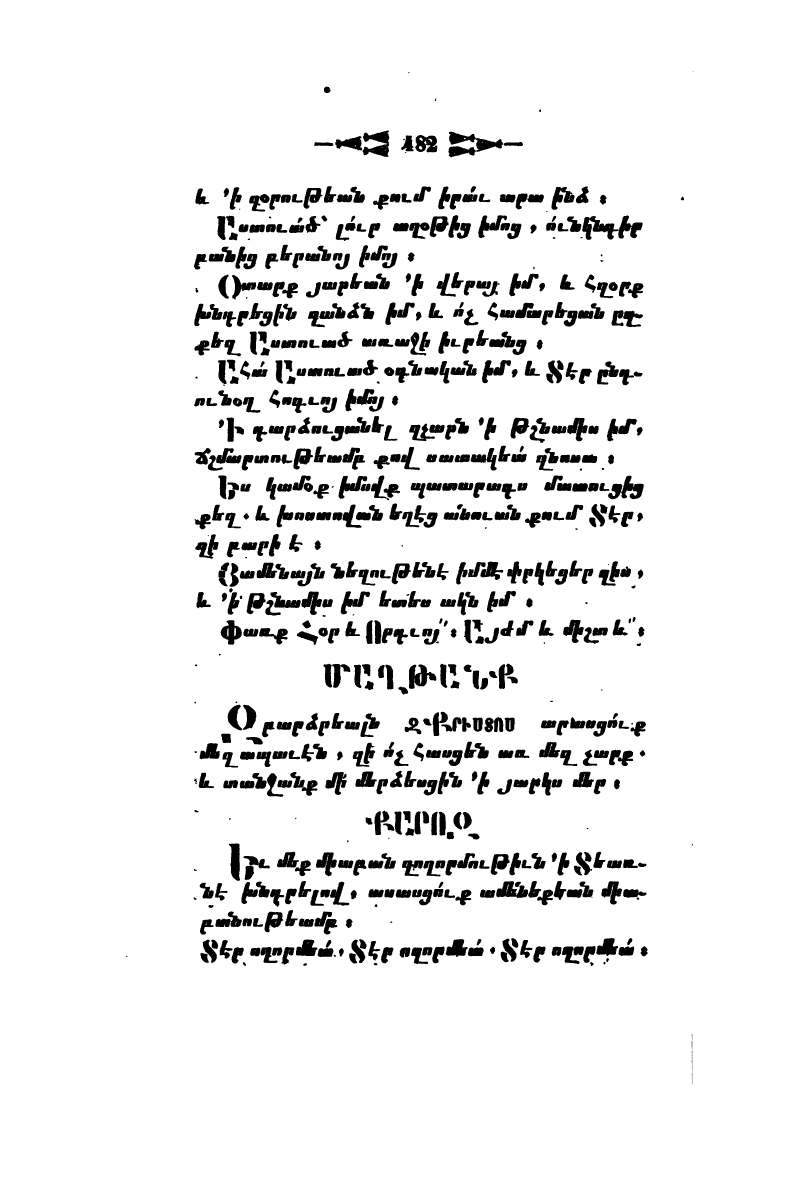 482
և ՚ի զօրութեան քում իրա՛ւ արա ինձ ։
Աստուա՛ծ՝ լո՛ւր աղօթից իմոց , ո՛ւնկնդիր
բանից բերանոյ իմոյ ։
Օտարք յարեան ՚ի վերայ իմ, և հզօրք
խնդրեցին զանձն իմ, և ո՛չ համարեցան ըզ֊
քեզ Աստուած առաջի իւրեանց ։
Ահա՛ Աստուած օգնական իմ, և Տէր ընդ֊
ունօղ հոգւոյ իմոյ ։
՚Ի դարձուցանել զչարն ՚ի թշնամիս իմ,
ճշմարտութեամբ քով սատակեա՛ զնոսա ։
Ես կամօք իմովք պատարագս մատուցից
քեզ . և խոստովան եղէց ա՛նուան քում Տէր,
զի բարի է ։
Յամենայն նեղութենէ իմմէ փրկեցեր զիս ,
և ՚ի թշնամիս իմ ետես ակն իմ ։
Փառք Հօր և Որդւոյ՟։ Այժմ և միշտ և՟։
ՄԱՂԹԱՆՔ
Զբարձրեալն ԶՔՐԻՍՏՈՍ արասցո՛ւք
մեզ ապաւէն , զի ո՛չ հասցեն առ մեզ չարք .
և տանջանք մի՛ մերձեսցին ՚ի յարկս մեր ։
ՔԱՐՈԶ
Եւ մեք միաբան զողորմութիւն ՚ի Տեառ֊
նէ խնդրելով, ասասցո՛ւք ամենեքեան միա֊
բանութեամբ ։
Տէր ողորմեա՛ , Տէր ողորմեա՛ . Տէր ողորմեա՛ ։